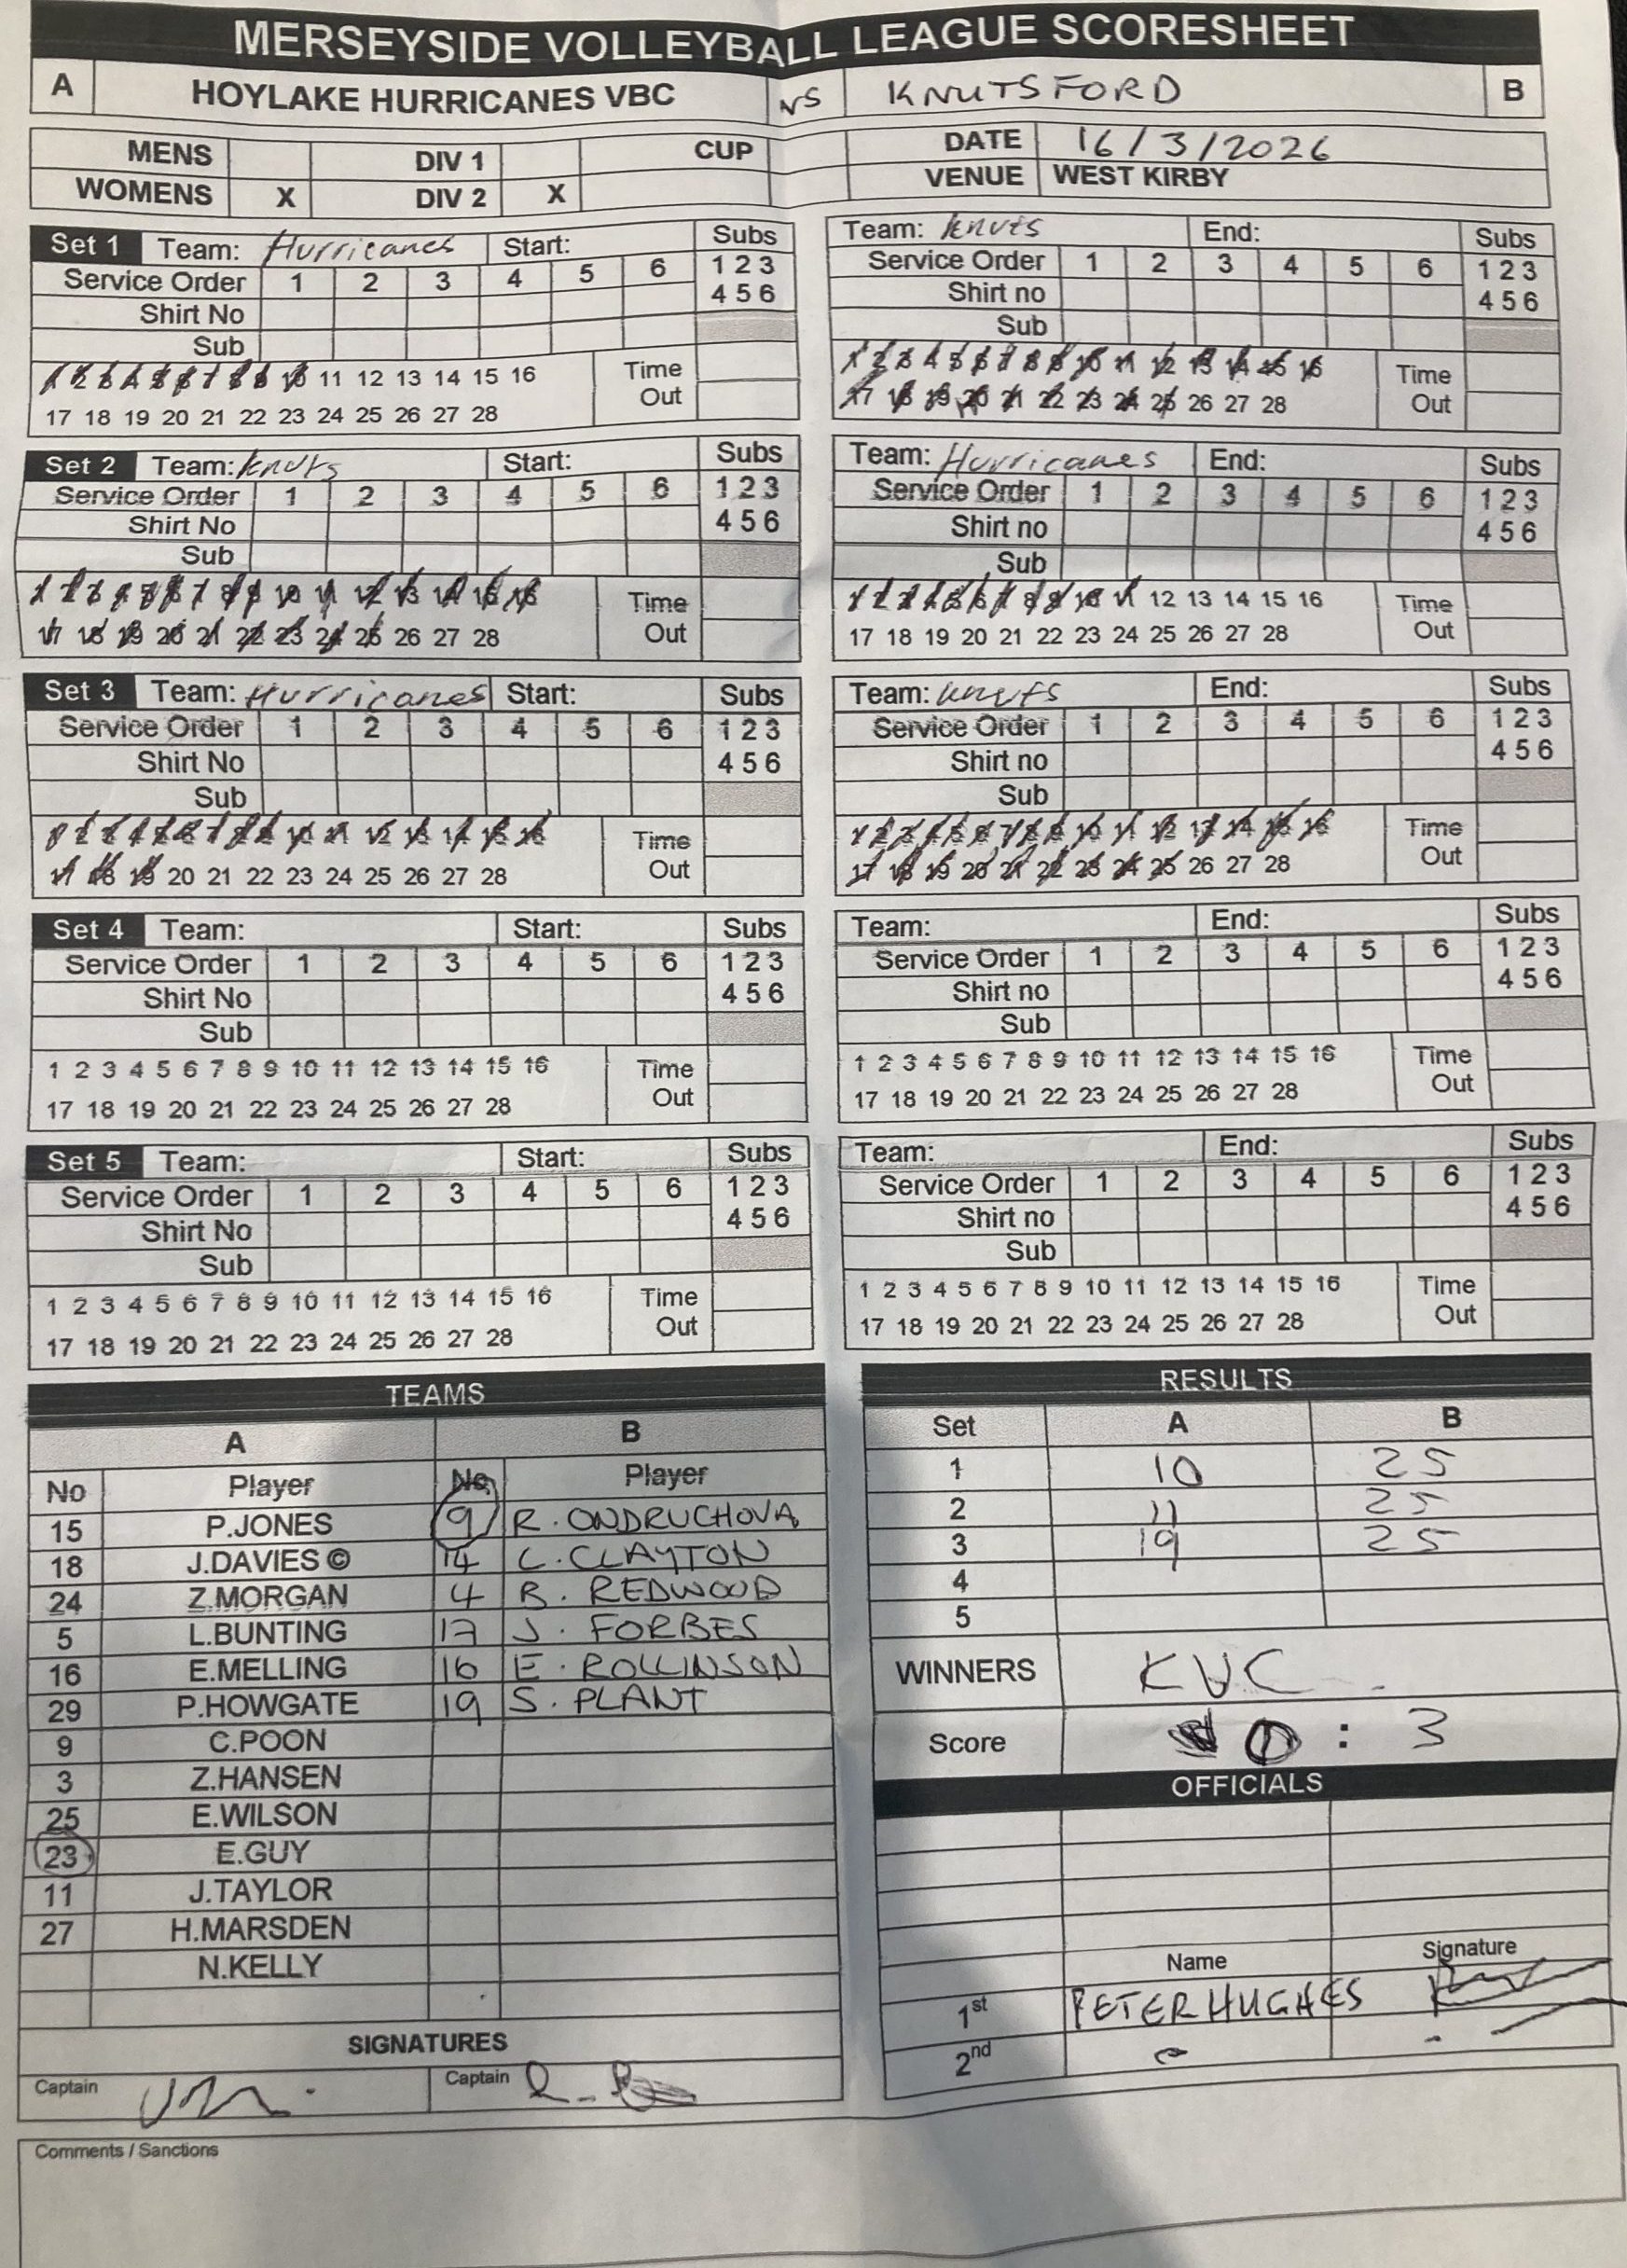 MERSEYSIDE VOLLEYBALL LEAGUE SCORESHEET
A HOYLAKE HURRICANES VBC VS KNUTSFORD B
MENS DIV 1 CUP DATE 16/3/2026
WOMENS X DIV 2 X VENUE WEST KIRBY
Set 1 Team: Hurricanes Start: Subs
Service Order 1 2 3 4 5 6 1 2 3
Shirt No 4 5 6
Sub
1 2 3 4 5 6 7 8 9 10 11 12 13 14 15 16 Time
17 18 19 20 21 22 23 24 25 26 27 28 Out
Team: Knuts End: Subs
Service Order 1 2 3 4 5 6 1 2 3
Shirt no 4 5 6
Sub
1 2 3 4 5 6 7 8 9 10 11 12 13 14 15 16 Time
17 18 19 20 21 22 23 24 25 26 27 28 Out
Set 2 Team: Knuts Start: Subs
Service Order 1 2 3 4 5 6 1 2 3
Shirt No 4 5 6
Sub
1 2 3 4 5 6 7 8 9 10 11 12 13 14 15 16 Time
17 18 19 20 21 22 23 24 25 26 27 28 Out
Team: Hurricanes End: Subs
Service Order 1 2 3 4 5 6 1 2 3
Shirt no 4 5 6
Sub
1 2 3 4 5 6 7 8 9 10 11 12 13 14 15 16 Time
17 18 19 20 21 22 23 24 25 26 27 28 Out
Set 3 Team: Hurricanes Start: Subs
Service Order 1 2 3 4 5 6 1 2 3
Shirt No 4 5 6
Sub
1 2 3 4 5 6 7 8 9 10 11 12 13 14 15 16 Time
17 18 19 20 21 22 23 24 25 26 27 28 Out
Team: Knuts End: Subs
Service Order 1 2 3 4 5 6 1 2 3
Shirt no 4 5 6
Sub
1 2 3 4 5 6 7 8 9 10 11 12 13 14 15 16 Time
17 18 19 20 21 22 23 24 25 26 27 28 Out
Set 4 Team: Start: Subs
Service Order 1 2 3 4 5 6 1 2 3
Shirt No 4 5 6
Sub
1 2 3 4 5 6 7 8 9 10 11 12 13 14 15 16 Time
17 18 19 20 21 22 23 24 25 26 27 28 Out
Team: End: Subs
Service Order 1 2 3 4 5 6 1 2 3
Shirt no 4 5 6
Sub
1 2 3 4 5 6 7 8 9 10 11 12 13 14 15 16 Time
17 18 19 20 21 22 23 24 25 26 27 28 Out
Set 5 Team: Start: Subs
Service Order 1 2 3 4 5 6 1 2 3
Shirt No 4 5 6
Sub
1 2 3 4 5 6 7 8 9 10 11 12 13 14 15 16 Time
17 18 19 20 21 22 23 24 25 26 27 28 Out
Team: End: Subs
Service Order 1 2 3 4 5 6 1 2 3
Shirt no 4 5 6
Sub
1 2 3 4 5 6 7 8 9 10 11 12 13 14 15 16 Time
17 18 19 20 21 22 23 24 25 26 27 28 Out
TEAMS
A B
No Player No. Player
15 P.JONES 9 R. ONDRUCHOVA
18 J.DAVIES © 14 C. CLAYTON
24 Z.MORGAN 4 B. REDWOOD
5 L.BUNTING 17 J. FORBES
16 E.MELLING 16 E. ROLLINSON
29 P.HOWGATE 19 S. PLANT
9 C.POON
3 Z.HANSEN
25 E.WILSON
23 E.GUY
11 J.TAYLOR
27 H.MARSDEN
N.KELLY
SIGNATURES
Captain Captain
RESULTS
Set A B
1 10 25
2 11 25
3 19 25
4
5
WINNERS KVC
Score 0 : 3
OFFICIALS
Name Signature
1st PETER HUGHES
2nd
Comments / Sanctions